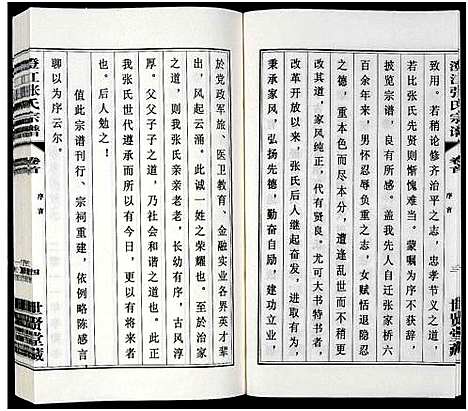 澄江张氏宗谱
卷首
序言
三
世贤堂藏
致用。若稍论修齐治平之志，忠孝节义之道，
若张氏先贤则惭愧难当。蒙嘱为序不获辞，
披览宗谱，良有所感。盖我先人自迁到张家桥六
百余年来，男耕忍辱负重之志，女赋恬退隐忍
之德，重本色而尽本分，遭逢乱世而不稍
改其道，家风纯正，代有贤良。尤可大书特书者，
改革开放以来，张氏后人继起奋发，
秉承家风，弘扬先德，勤奋自励，奋勇拼搏，建功立业，
於党政军旅、医卫教育、金融实业各界英才辈
出，风起云涌，此诚一姓之荣耀也。至於治家
之道，则我张氏亲亲老老，长幼有序，古风淳
厚。父父子子之道，乃社会和谐之道也。此正
我张氏世代遵从，更当以有今日，更以有将来者
也。后人勉之！
值此宗谱刊行、宗祠重建，依例略陈感言
聊以为序云尔。
澄江张氏宗谱
卷首
序言
世贤堂藏